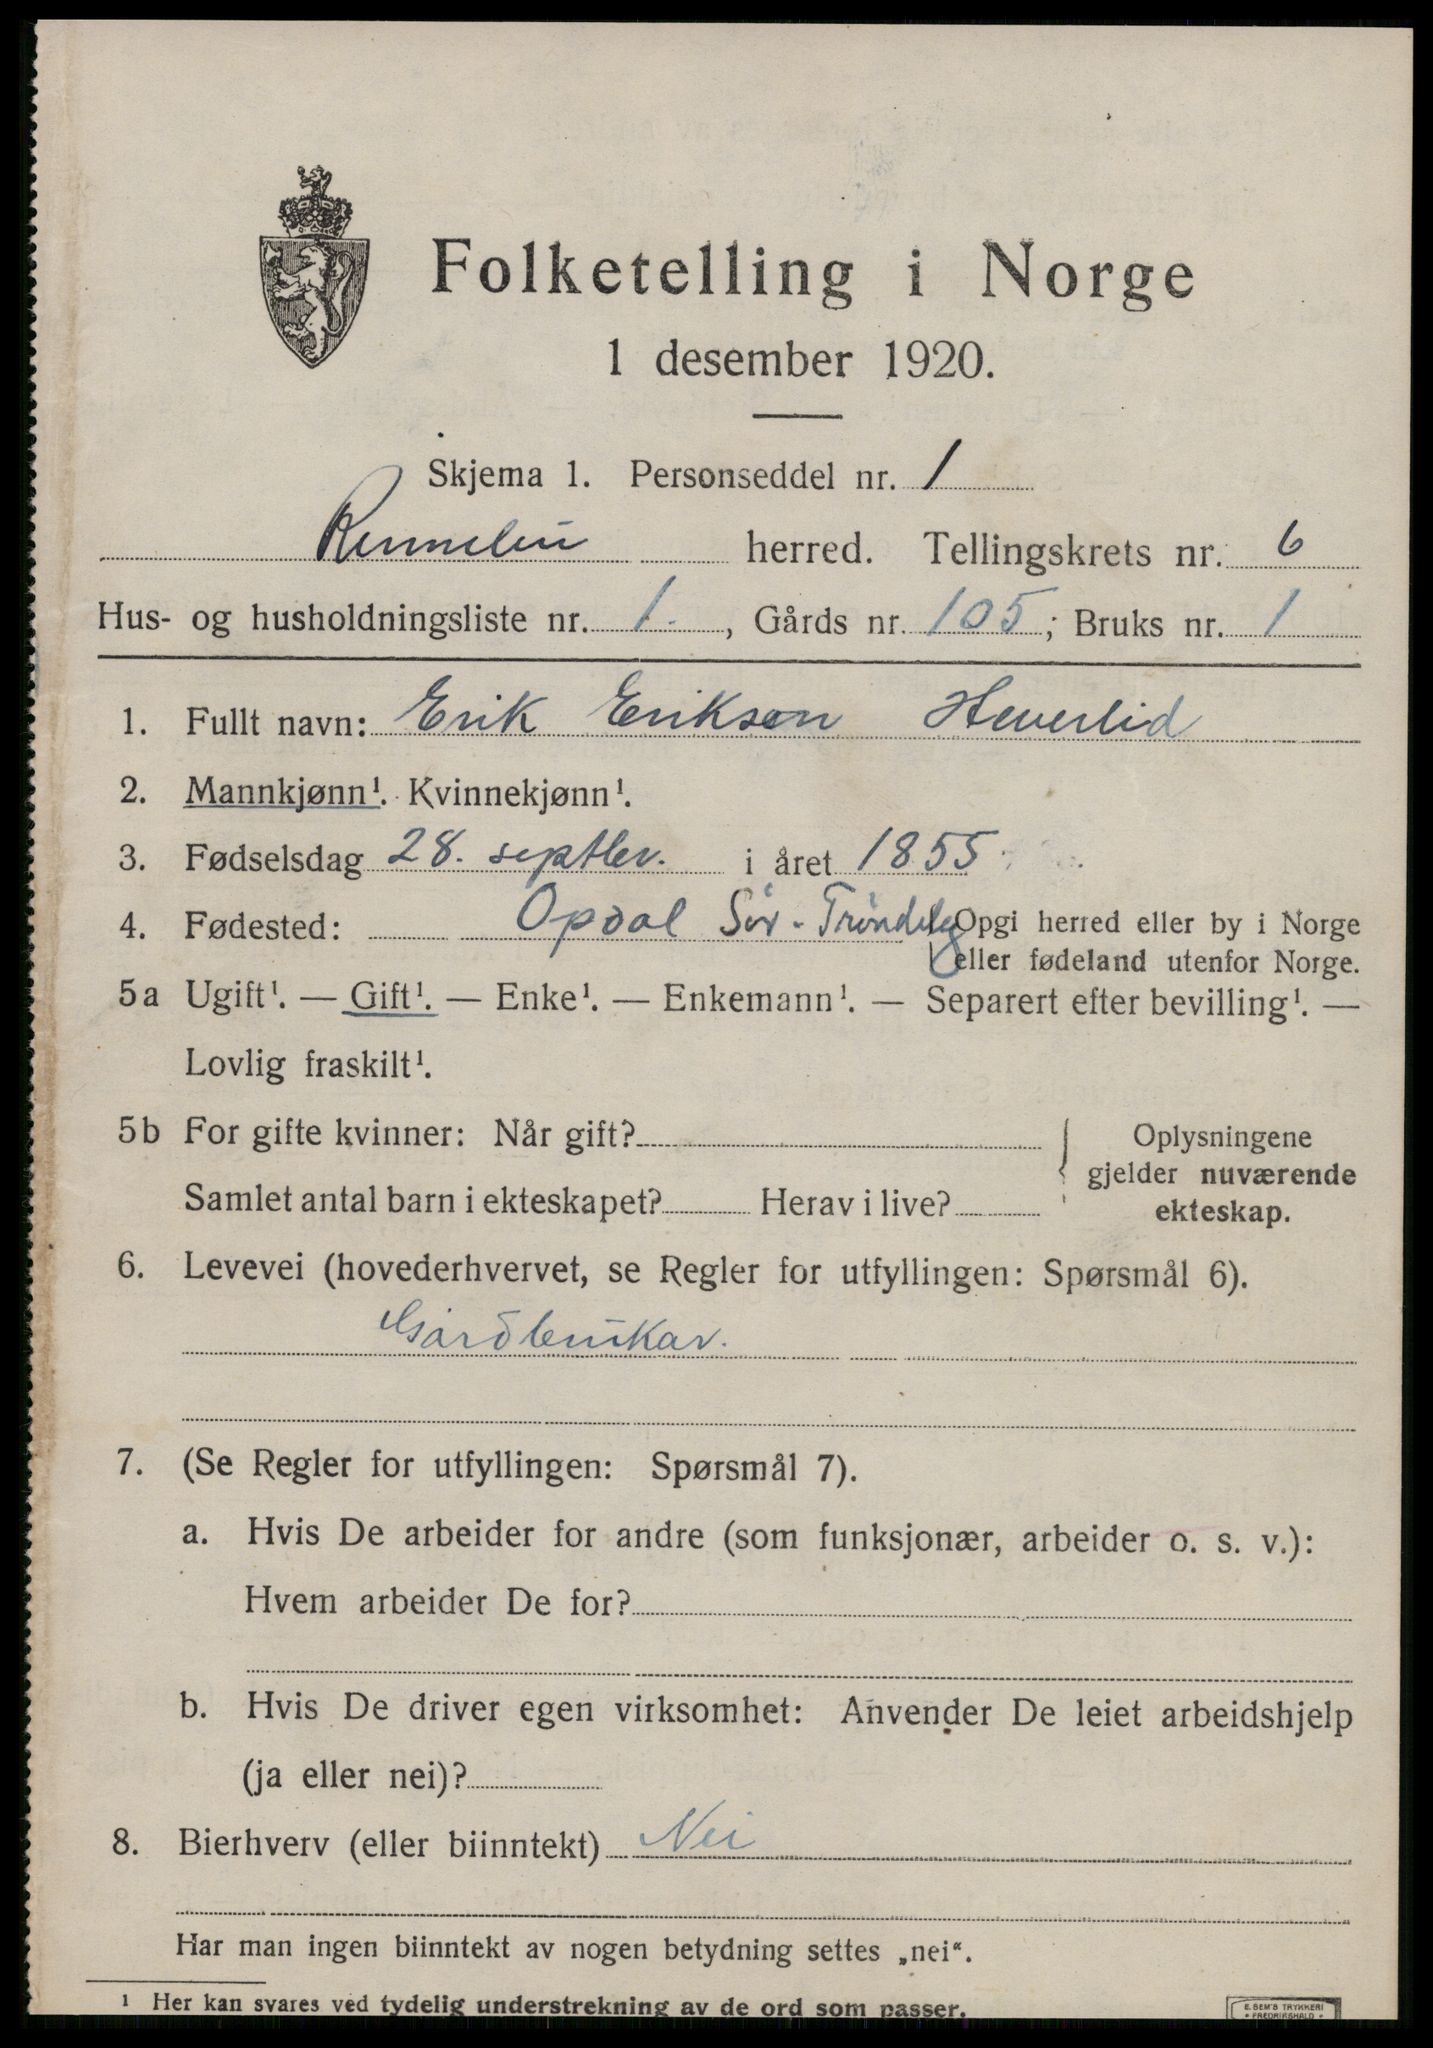 Folketelling i Norge
1 desember 1920.
Skjema 1. Personseddel nr. 1
Rennebu herred. Tellingskrets nr. 6
Hus- og husholdningsliste nr. 1. , Gårds nr. 105; Bruks nr. 1
1. Fullt navn: Erik Erikson Heverlid
2. Mannkjønn¹. Kvinnekjønn¹.
3. Fødselsdag 28. septbr. i året 1855
4. Fødested: Opdal Sør-Trøndelg { Opgi herred eller by i Norge
eller fødeland utenfor Norge.
5a Ugift¹. — Gift¹. — Enke¹. — Enkemann¹. — Separert efter bevilling¹. —
Lovlig fraskilt¹.
5b For gifte kvinner: Når gift? { Oplysningene
gjelder nuværende
Samlet antal barn i ekteskapet? Herav i live?
ekteskap.
6. Levevei (hovederhvervet, se Regler for utfyllingen: Spørsmål 6).
Gårdbrukar.
7. (Se Regler for utfyllingen: Spørsmål 7).
a. Hvis De arbeider for andre (som funksjonær, arbeider o. s. v.):
Hvem arbeider De for?
b. Hvis De driver egen virksomhet: Anvender De leiet arbeidshjelp
(ja eller nei)?
8. Bierhverv (eller biinntekt) Nei
Har man ingen biinntekt av nogen betydning settes „nei“.
¹ Her kan svares ved tydelig understrekning av de ord som passer.
E. SEM'S TRYKKERI
• FREDRIKSHALD •